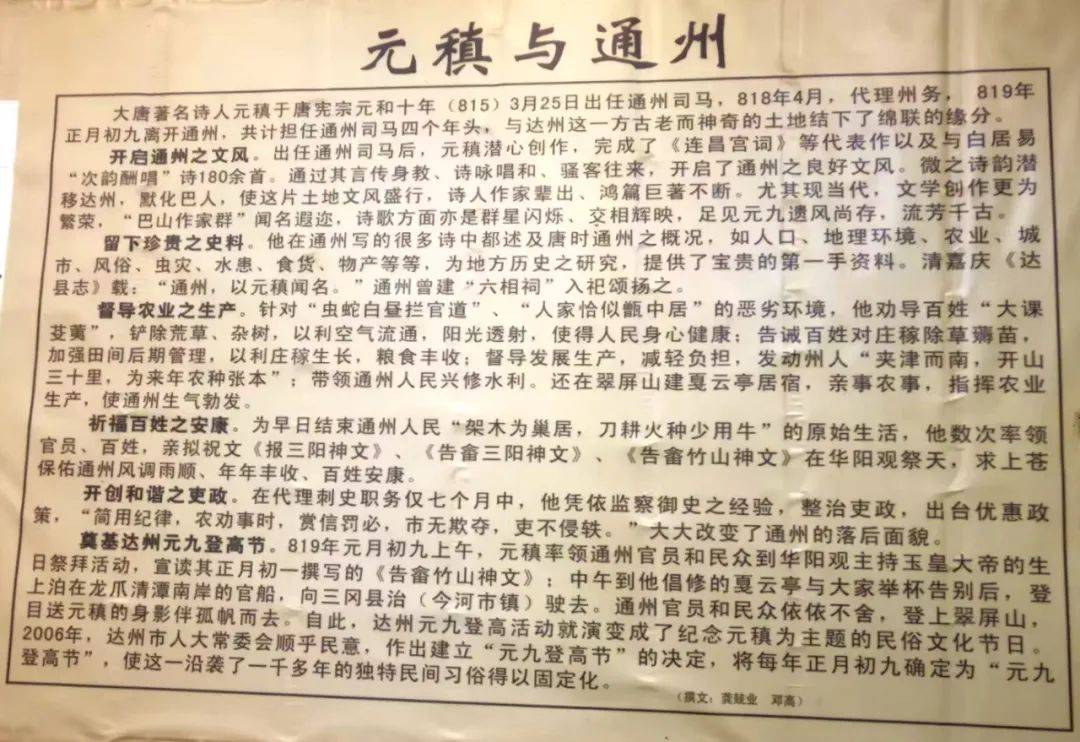 元稹与通州
大唐著名诗人元稹于唐宪宗元和十年（815）3月25日出任通州司马，818年4月，代理州务，819年
正月初九离开通州，共计担任通州司马四个年头，与达州这一方古老而神奇的土地结下了绵联的缘分。
开启通州之文风。出任通州司马后，元稹潜心创作，完成了《连昌宫词》等代表作以及与白居易
“次韵酬唱”诗180余首。通过其言传身教、诗咏唱和、骚客往来，开启了通州之良好文风。微之诗韵潜
移达州，默化巴人，使这片土地文风盛行，诗人作家辈出、鸿篇巨著不断。尤其现当代，文学创作更为
繁荣，“巴山作家群”闻名遐迩，诗歌方面亦是群星闪烁、交相辉映，足见元九遗风尚存，流芳千古。
留下珍贵之史料。他在通州写的很多诗中都述及唐时通州之概况，如人口、地理环境、农业、城
市、风俗、虫灾、水患、食货、物产等等，为地方历史之研究，提供了宝贵的第一手资料。清嘉庆《达
县志》载：“通州，以元稹闻名。”通州曾建“六相祠”入祀颂扬之。
督导农业之生产。针对“虫蛇白昼拦官道”、“人家恰似甑中居”的恶劣环境，他劝导百姓“大课
芟荑”，铲除荒草、杂树，以利空气流通，阳光透射，使得人民身心健康；告诫百姓对庄稼除草薅苗，
加强田间后期管理，以利庄稼生长，粮食丰收；督导发展生产，减轻负担，发动州人“夹津而南，开山
三十里，为来年农种张本”；带领通州人民兴修水利。还在翠屏山建戛云亭居宿，亲事农事，指挥农业
生产，使通州生气勃发。
祈福百姓之安康。为早日结束通州人民“架木为巢居，刀耕火种少用牛”的原始生活，他数次率领
官员、百姓，亲拟祝文《报三阳神文》、《告畲三阳神文》、《告畲竹山神文》在华阳观祭天，求上苍
保佑通州风调雨顺、年年丰收、百姓安康。
开创和谐之吏政。在代理刺史职务仅七个月中，他凭依监察御史之经验，整治吏政，出台优惠政
策，“简用纪律，农劝事时，赏信罚必，市无欺夺，吏不侵轶。”大大改变了通州的落后面貌。
奠基达州元九登高节。819年元月初九上午，元稹率领通州官员和民众到华阳观主持玉皇大帝的生
日祭拜活动，宣读其正月初一撰写的《告畲竹山神文》；中午到他倡修的戛云亭与大家举杯告别后，登
上泊在龙爪清潭南岸的官船，向三冈县治（今河市镇）驶去。通州官员和民众依依不舍，登上翠屏山，
目送元稹的身影伴孤帆而去。自此，达州元九登高活动就演变成了纪念元稹为主题的民俗文化节日。
2006年，达州市人大常委会顺乎民意，作出建立“元九登高节”的决定，将每年正月初九确定为“元九
登高节”，使这一沿袭了一千多年的独特民间习俗得以固定化。
（撰文：龚兢业 邓高）